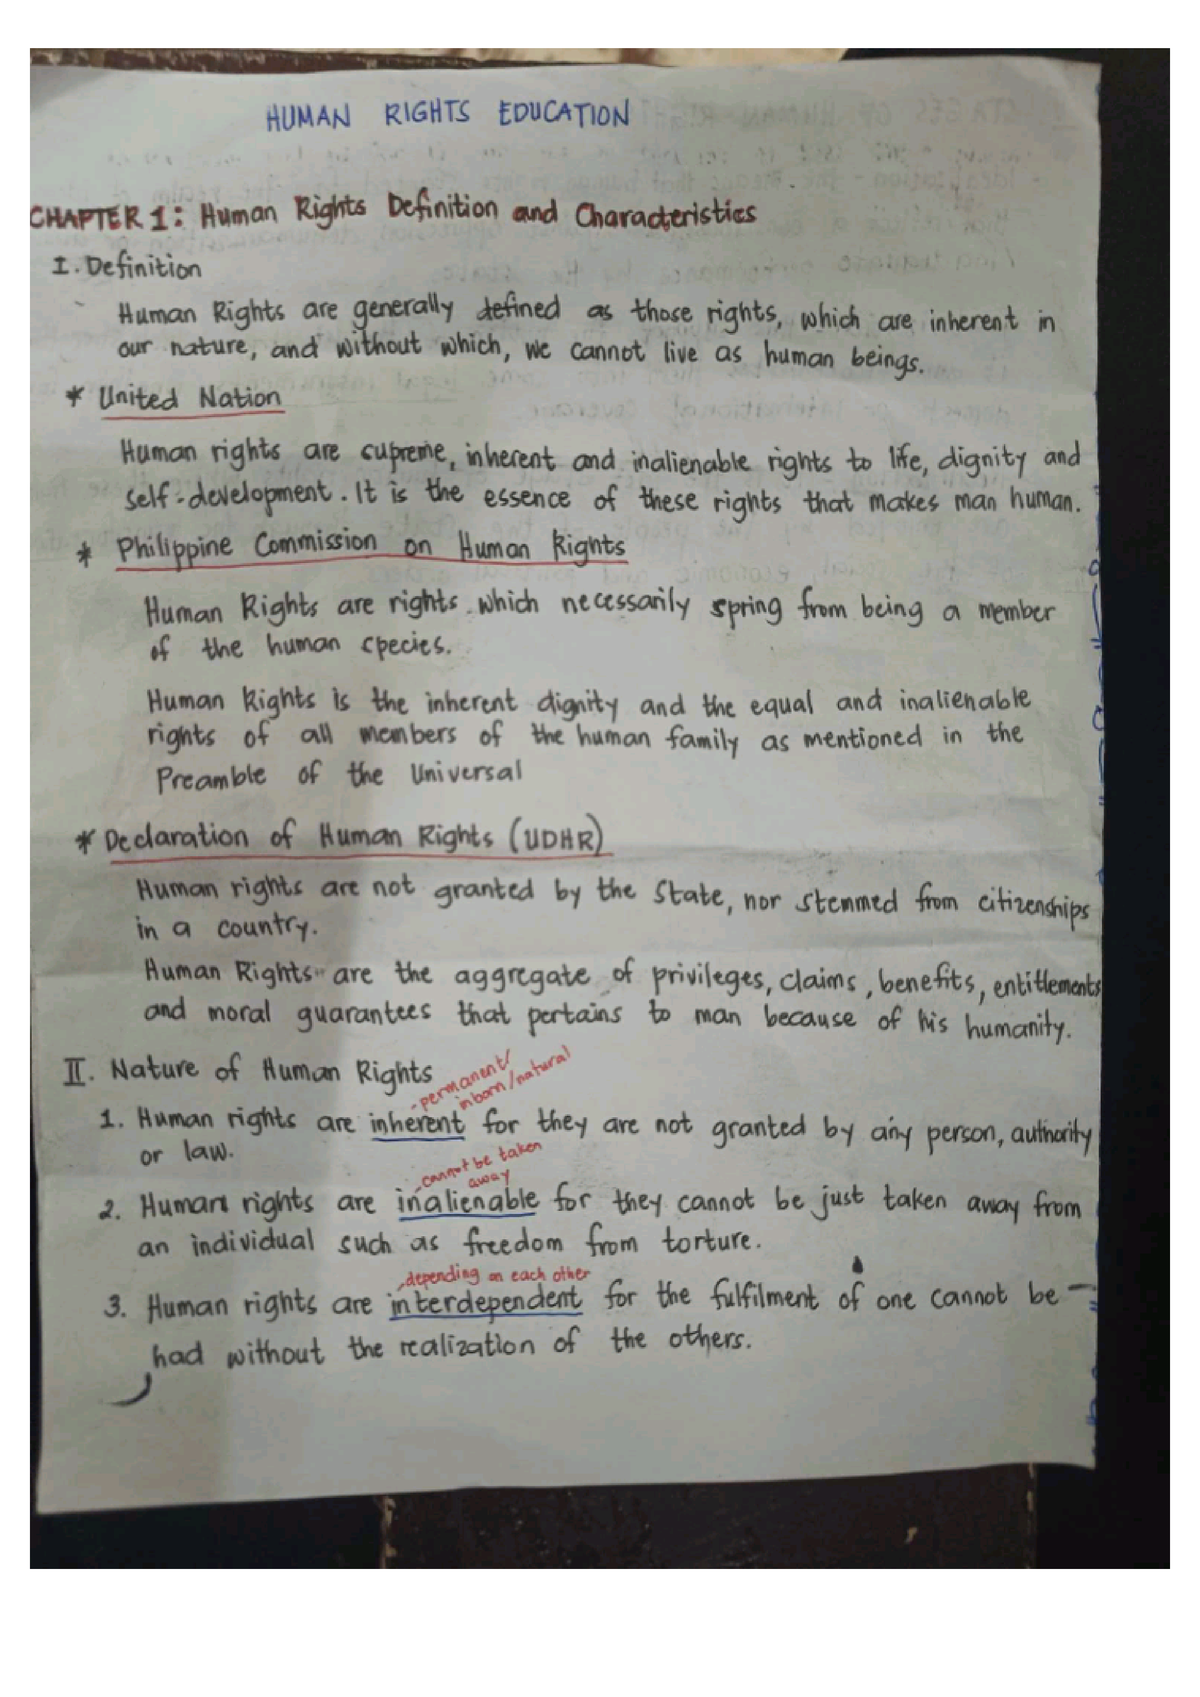 HUMAN RIGHTS EDUCATION
CHAPTER 1: Human Rights Definition and Characteristics
I. Definition
Human Rights are generally defined as those rights, which are inherent in
our nature, and without which, we cannot live as human beings.
* United Nation
Human rights are supreme, inherent and inalienable rights to life, dignity and
self-development. It is the essence of these rights that makes man human.
* Philippine Commission on Human Rights
Human Rights are rights which necessarily spring from being a member
of the human species.
Human Rights is the inherent dignity and the equal and inalienable
rights of all members of the human family as mentioned in the
Preamble of the Universal
* Declaration of Human Rights (UDHR)
Human rights are not granted by the State, nor stemmed from citizenships
in a country.
Human Rights are the aggregate of privileges, claims, benefits, entitlements
and moral guarantees that pertains to man because of his humanity.
II. Nature of Human Rights
- permanent/
inborn/natural
1. Human rights are inherent for they are not granted by any person, authority
or law.
- cannot be taken
away
2. Human rights are inalienable for they cannot be just taken away from
an individual such as freedom from torture.
depending on each other
3. Human rights are interdependent for the fulfilment of one cannot be
had without the realization of the others.